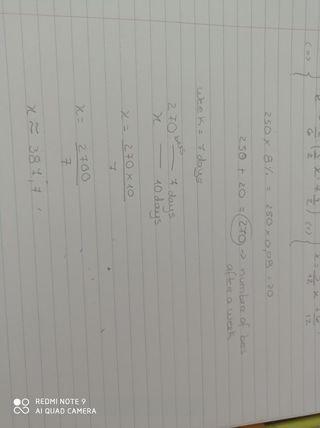 cos
250 x 8% = 250 x 0,08 = 20
250 + 20 = 270 -> number of bees
after a week
week = 7 days
270 bees — 7 days
x — 10 days
x = 270 x 10
7
x = 2700
7
x ≈ 387,7.
REDMI NOTE 9
AI QUAD CAMERA